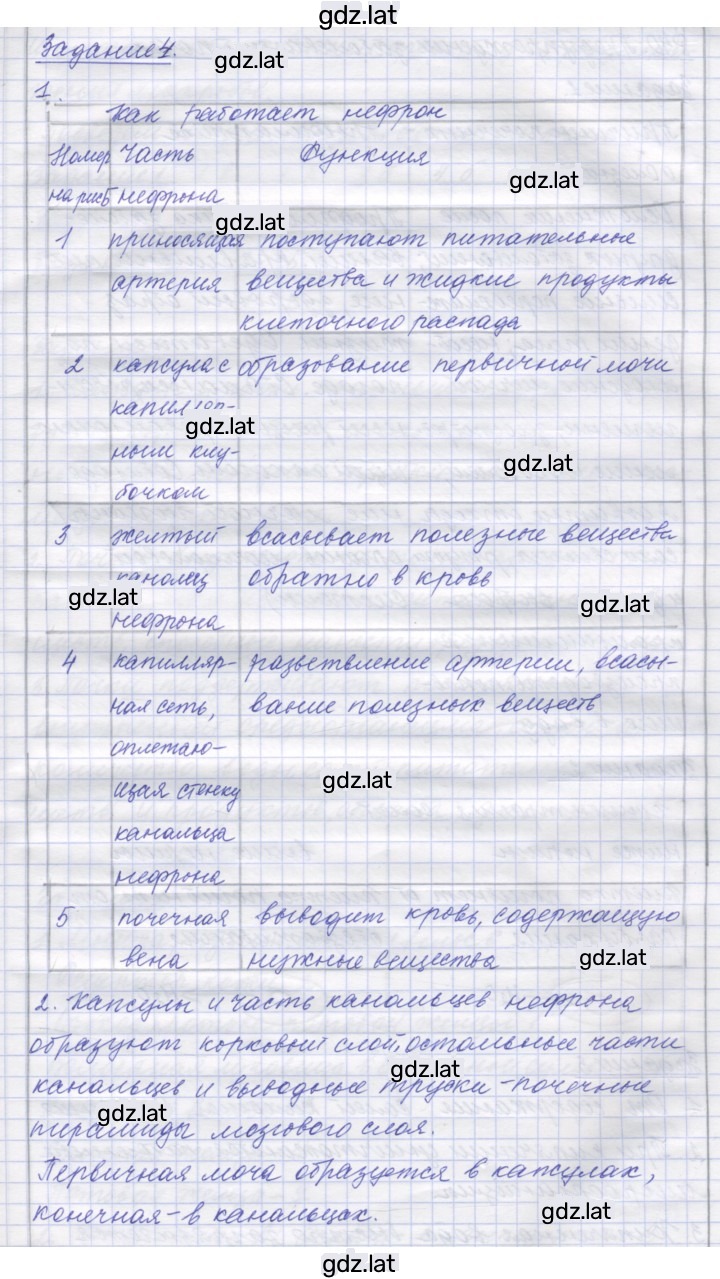 gdz.lat
Задание 4.
gdz.lat
1.
Как работает нефрон
Номер часть Функция
gdz.lat
на рис5 нефрона
gdz.lat
1 приносящая поступают питательные
артерия вещества и жидкие продукты
клеточного распада
2 капсула с образование первичной мочи
gdz.lat
ным клу-
gdz.lat
бочком
3 желтый всасывает полезные вещества
каналец обратно в кровь
gdz.lat
gdz.lat
нефрона
4 капилляр- разветвление артерии, всасы-
ная сеть, вание полезных веществ
оплетаю-
gdz.lat
щая стенку
канальца
нефрона
5 почечная выводит кровь, содержащую
вена нужные вещества
gdz.lat
2. Капсулы и часть канальцев нефрона
образуют корковый слой, остальные части
gdz.lat
канальцев и выводные труски - почечные
gdz.lat
пирамиды мозгового слоя.
Первичная моча образуется в капсулах,
конечная - в канальцах.
gdz.lat
gdz.lat